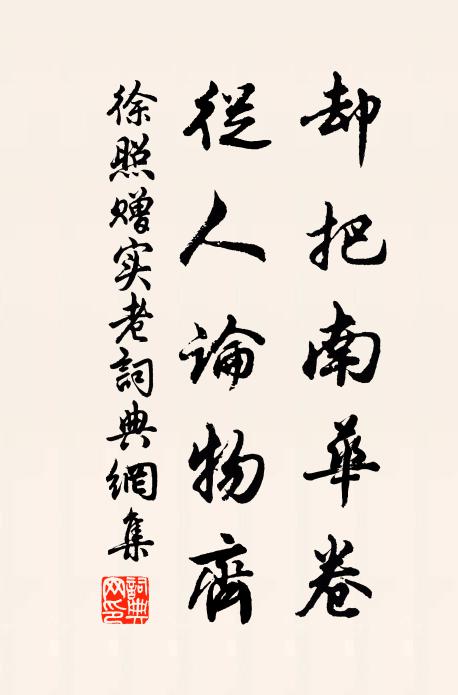 却把南華卷
從人論物齊
徐照贈实老詞典網集
詞典网印